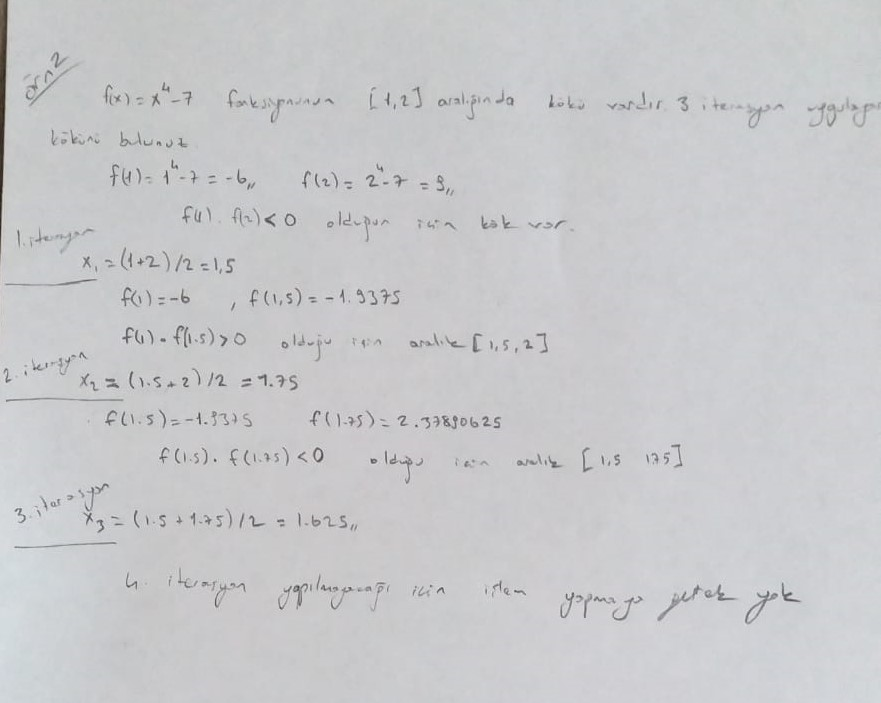 örn2
f(x) = x⁴-7 fonksiyonunun [1,2] aralığında kökü vardır. 3 iterasyon
kökünü bulunuz
f(1) = 1⁴-7 = -6,, f(2) = 2⁴-7 = 9,,
f(1) . f(2) < 0 olduğun için kök var.
1. iterasyon
x₁ = (1+2) /2 = 1,5
f(1) = -6 , f(1,5) = -1.9375
f(1) . f(1.5) > 0 olduğu için aralık [1,5, 2]
2. iterasyon
x₂ = (1.5 + 2) /2 = 1.75
f(1.5) = -1.9375 f(1.75) = 2.37890625
f(1.5) . f(1.75) < 0 olduğu için aralık [1,5 1.75]
3. iterasyon
x₃ = (1.5 + 1.75) /2 = 1.625,,
4. iterasyon yapılmayacağı için işlem yapmaya gerek yok